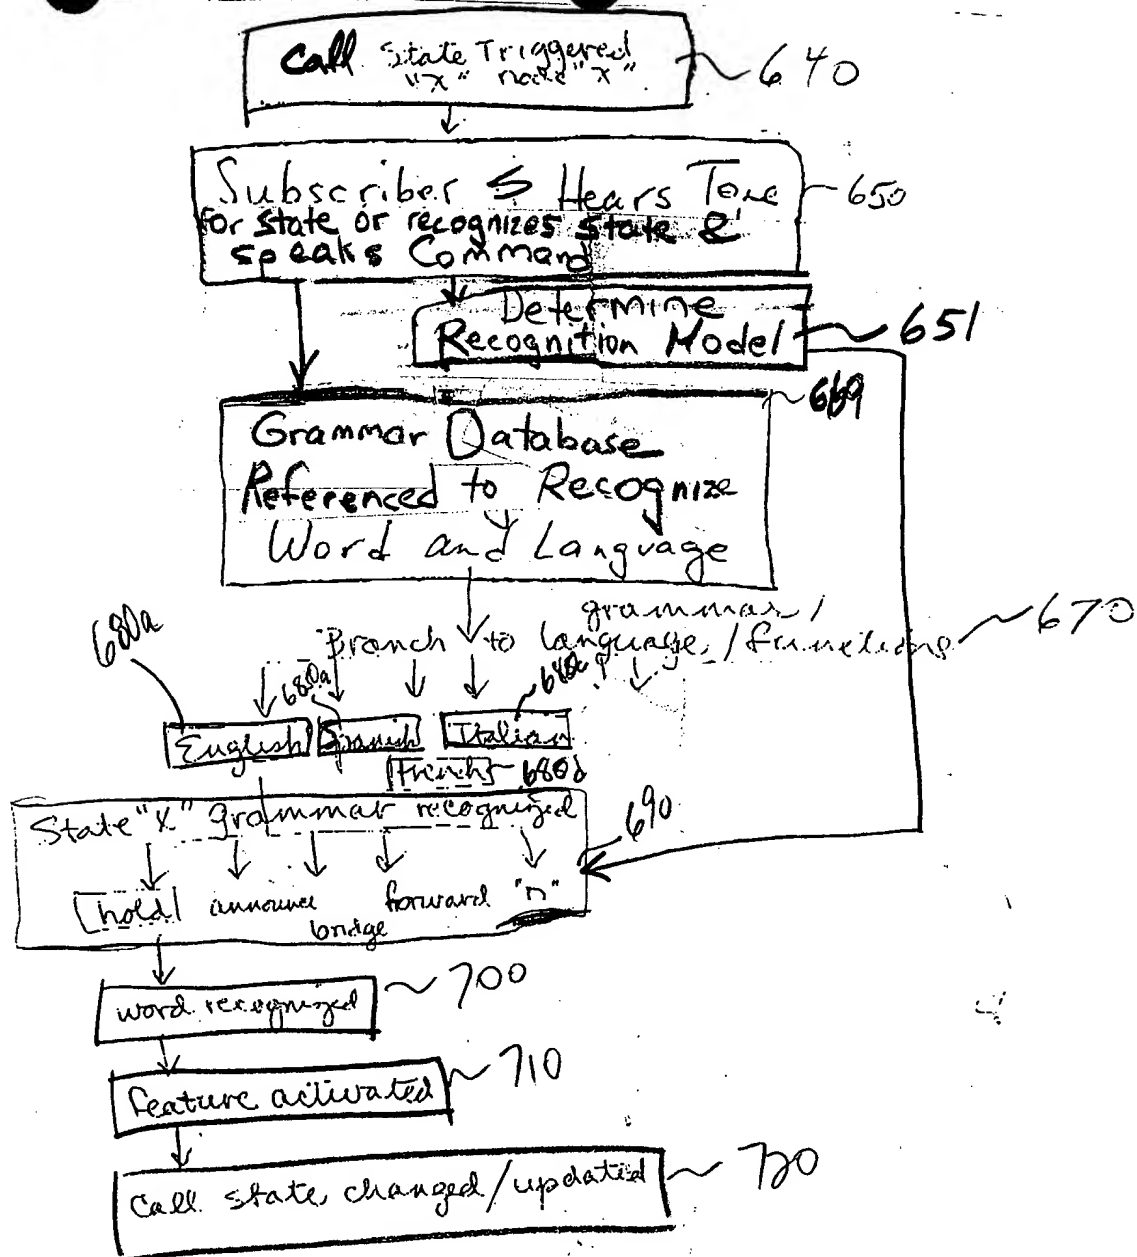 Call State Triggered
"x" node "x"
640
Subscriber S Hears Tone
for state or recognizes state &
speaks Command
650
Determine
Recognition Model
651
669
Grammar Database
Referenced to Recognize
Word and Language
grammar /
Branch to language / functions
670
680a
680a
680c
English Spanish Italian
French 680d
State "x" grammar recognized
690
hold announce bridge forward "n"
word recognized
700
feature activated
710
Call state changed/updated
720